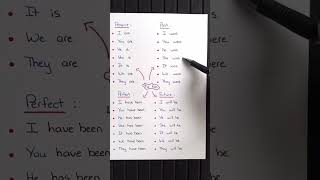 It is
We are
They are
Perfect :
I have been
You have been
He has been
Present :
I am
You are
He is
She is
It is
We are
They are
Past :
I was
You were
He was
She was
It was
We were
They were
Perfect :
I have been
You have been
He has been
She has been
It has been
We have been
They have been
Future :
I will be
You will be
He will be
She will be
It will be
We will be
They will be